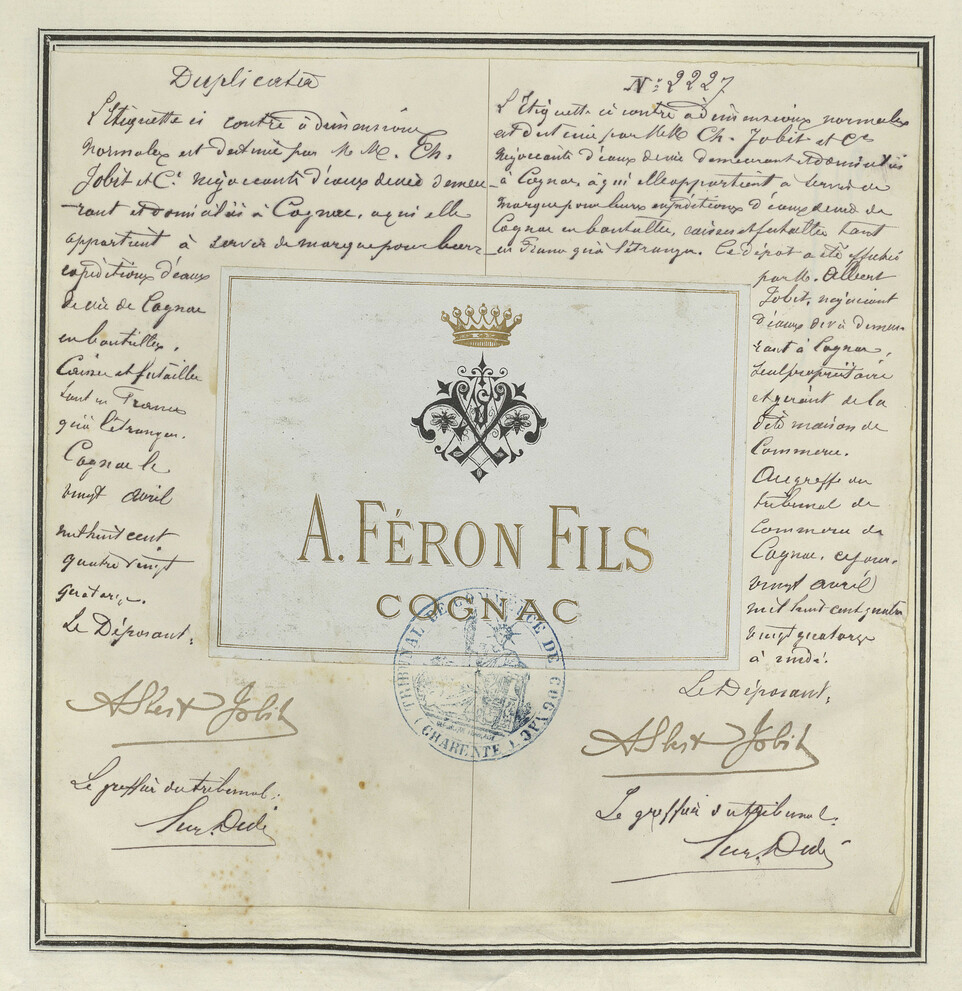 Duplicata
L'Etiquette ci contre à dimensions
normales est destinée par M. M. Ch.
Jobit et Cie négociants d'eaux de vie demeu-
rant et domiciliés à Cognac, a qui elle
appartient à servir de marque pour leurs
expéditions d'eaux
de vie de Cognac
en bouteilles,
Caisses et futailles
tant en France
qu'à l'étranger.
Cognac le
vingt avril
mil huit cent
quatre vingt
quatorze.
Le Déposant:
Albert Jobit
Le greffier du tribunal:
N° 2227
L'Etiquette ci contre à dimensions normales
est destinée par M M Ch. Jobit et Cie
négociants d'eaux de vie demeurant et domiciliés
à Cognac, à qui elle appartient à servir de
marque pour leurs expéditions d'eaux de vie de
Cognac en bouteilles, caisses et futailles tant
en France qu'à l'étranger. Ce dépôt a été effectué
par M. Albert
Jobit, négociant
d'eaux de vie demeu-
rant à Cognac,
seul propriétaire
et gérant de la
dite maison de
Commerce.
Au greffe du
tribunal de
Commerce de
Cognac, ce jour,
vingt avril
mil huit cent quatre
vingt quatorze
à midi.
Le Déposant:
Albert Jobit
Le greffier du tribunal:
A. FÉRON FILS
COGNAC
TRIBUNAL DE COMMERCE DE COGNAC
(CHARENTE)